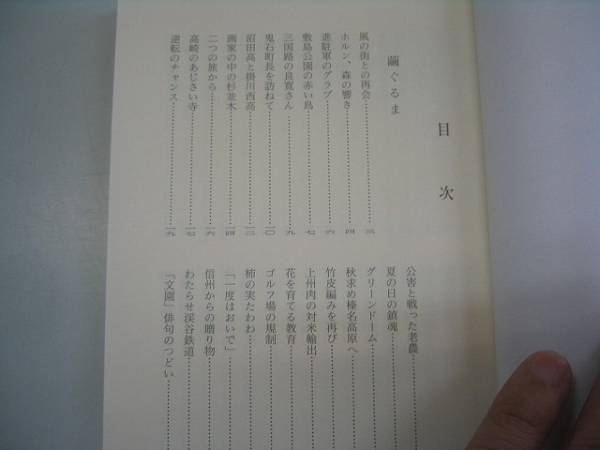 目次
繭ぐるま
風の街との再会……三
ホルン、森の響き……四
進駐軍のグラブ……六
敷島公園の赤い鳥……七
三国路の良寛さん……九
鬼石町長を訪ねて……一〇
沼田高と掛川西高……一二
画家の中の杉並木……一四
二つの旅から……一六
高崎のあじさい寺……一七
逆転のチャンス……一九
公害と戦った老農……
夏の日の鎮魂……
グリーンドーム……
秋求め榛名高原へ……
竹皮編みを再び……
上州肉の対米輸出……
花を育てる教育……
ゴルフ場の規制……
柿の実たわわ……
「一度はおいで」……
信州からの贈り物……
わたらせ渓谷鉄道……
「文園」俳句のつどい……